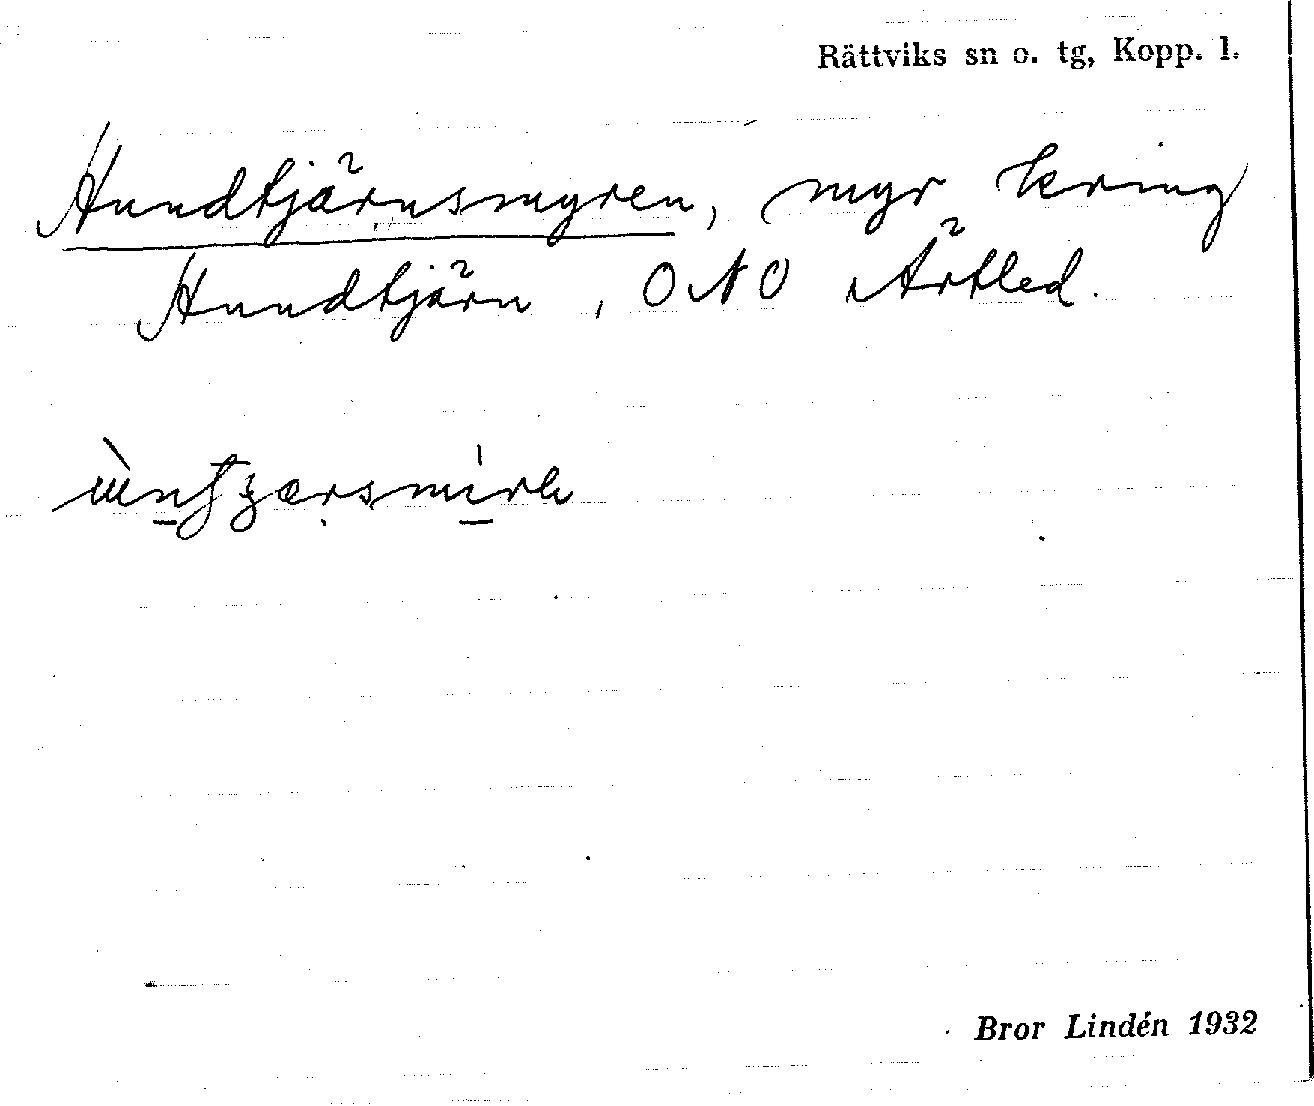 Rättviks sn o. tg, Kopp. l.
Hundtjärnsmyren, myr kring
Hundtjärn, ONO Ärtled.
Bror Lindén 1932